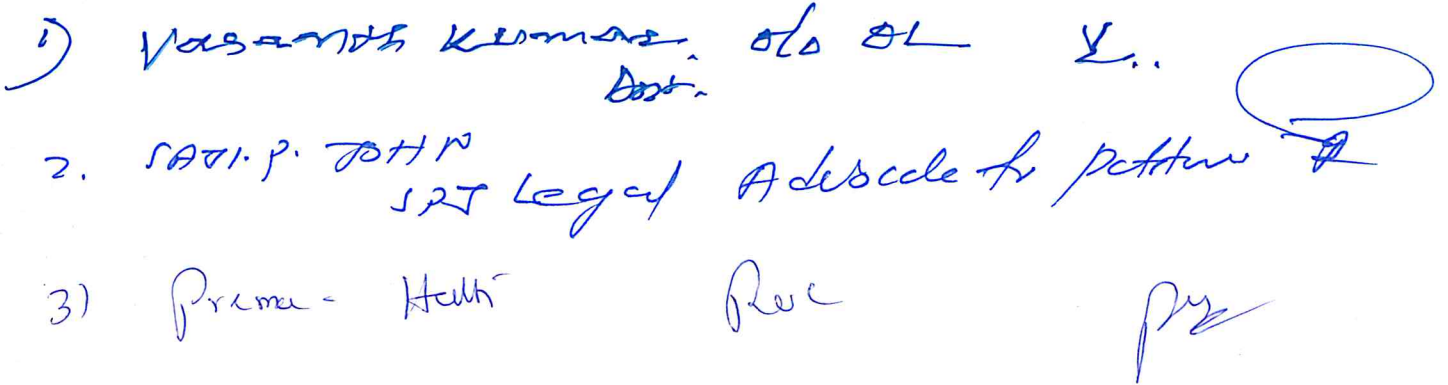 1) Vasanth Kumar. o/o OL
2. SAJI. P. JOHN
SPJ Legal Advocate for Petitioner
3) Prema - Hatti RoC